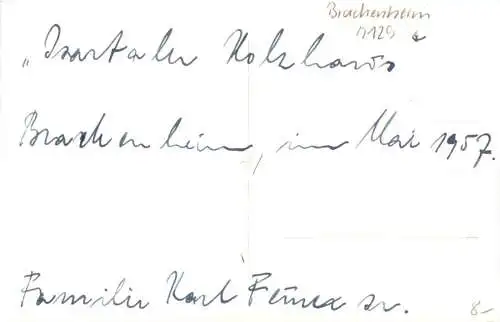 Brackenheim
"Isartaler Holzhaus"
Brackenheim, im Mai 1957.
Familie Karl sr.
8-